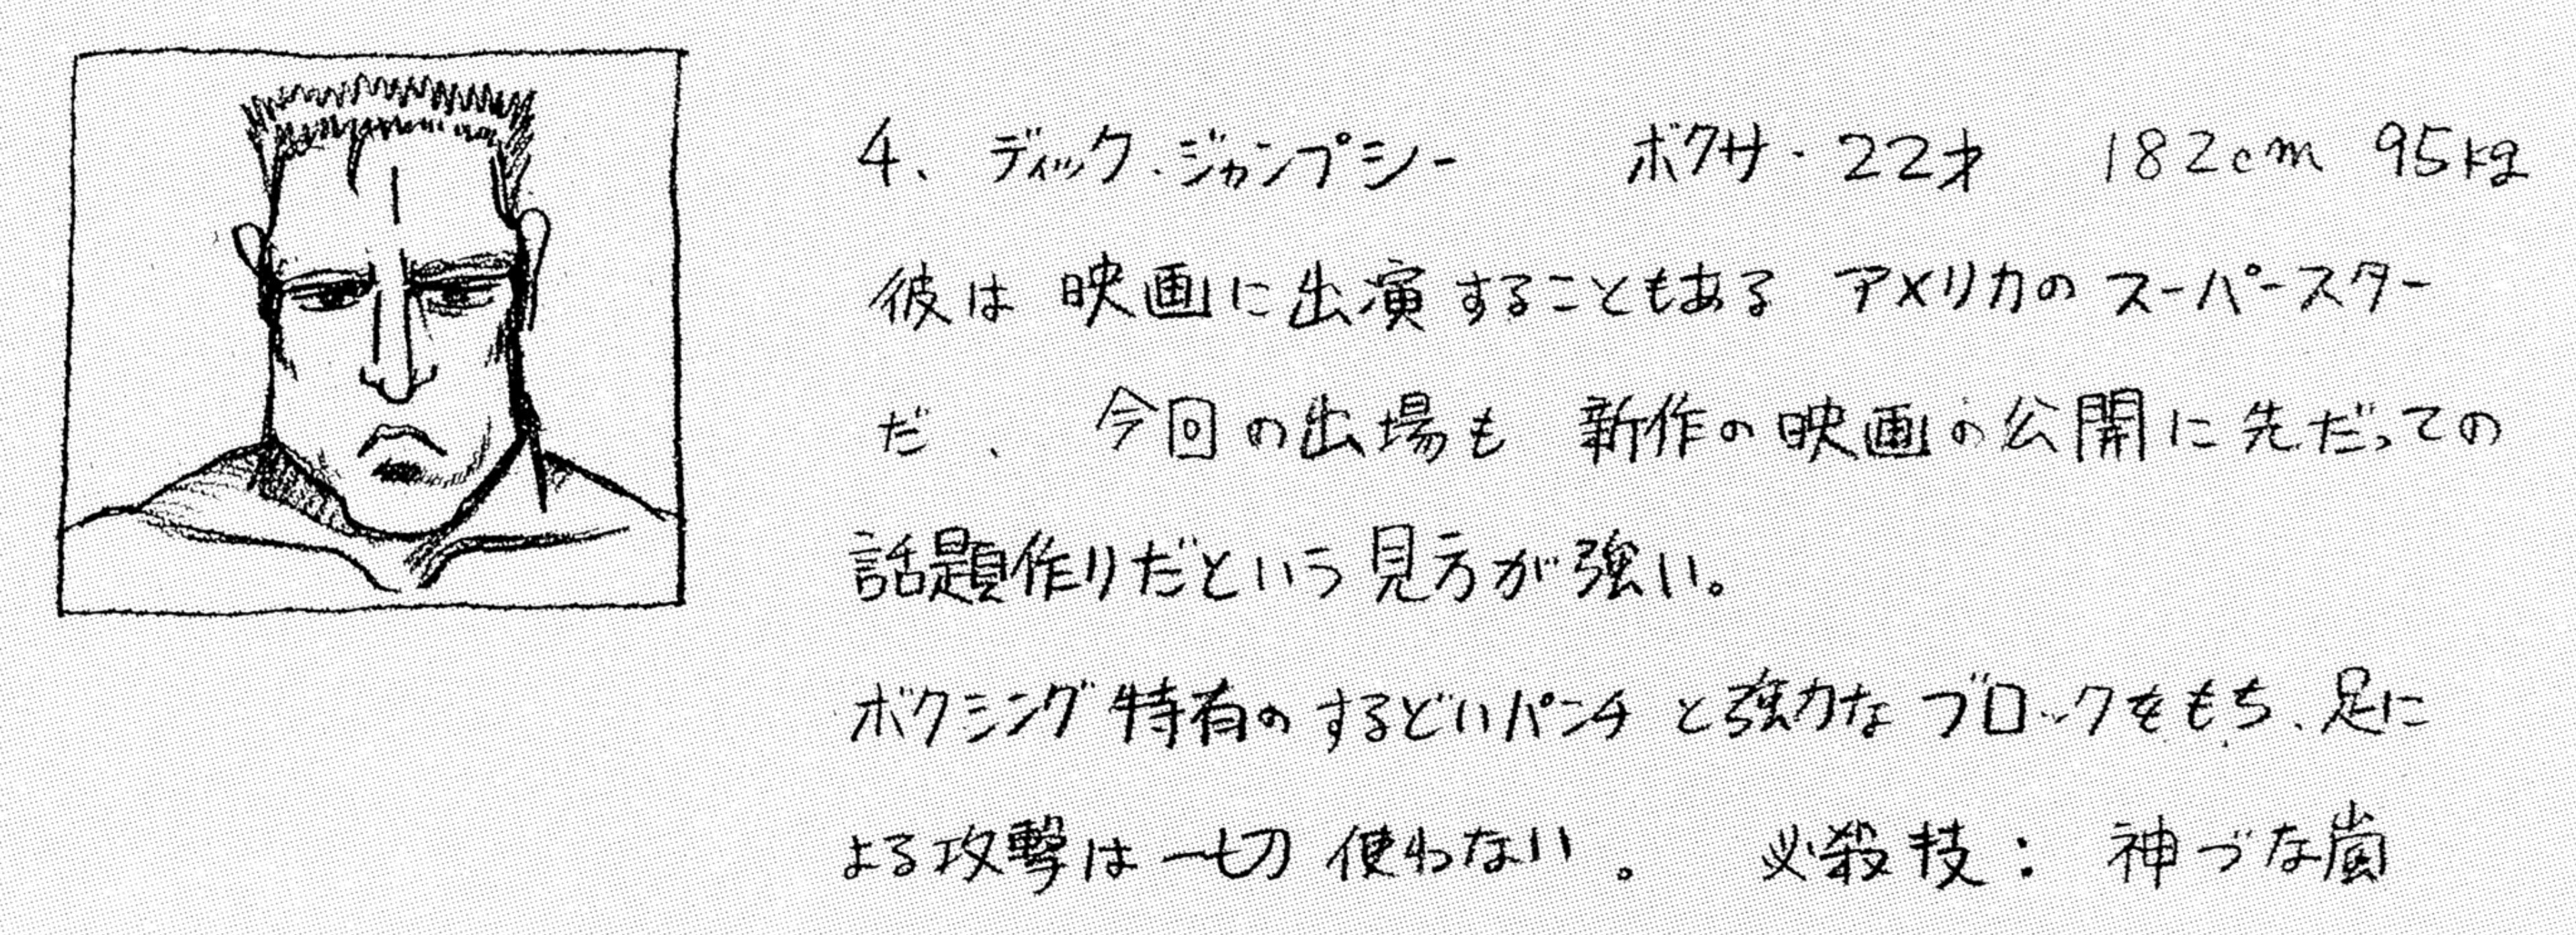 4、ディック・ジャンプシー　ボクサー 22才　182cm 95kg
彼は映画に出演することもある アメリカのスーパースター
だ、今回の出場も 新作の映画の公開に先だっての
話題作りだという見方が強い。
ボクシング特有のするどいパンチと強力なブロックをもち、足に
よる攻撃は一切使わない。　必殺技：神づな嵐